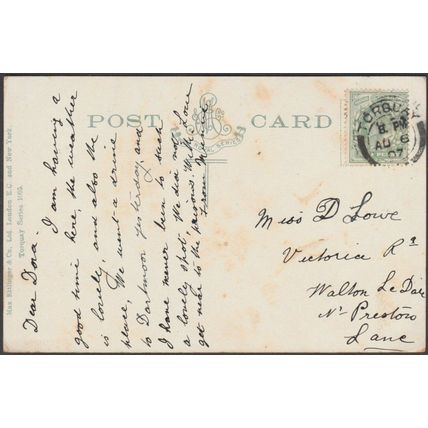 Max Ettlinger & Co., Ltd. London E.C. and New York.
Torquay Series 1685.
POST CARD
SERIES
TORQUAY
8 PM
AU 6
07
Dear Dora. I am having a
good time here, the weather
is lovely, and also the
place, We went a drive
to Dartmoor yesterday, and
I have never been to such
a lovely spot. We did not
get near to the prisons. With Love
From M
Miss D Lowe
Victoria Rd
Walton Le Dale
Nr Preston
Lanc